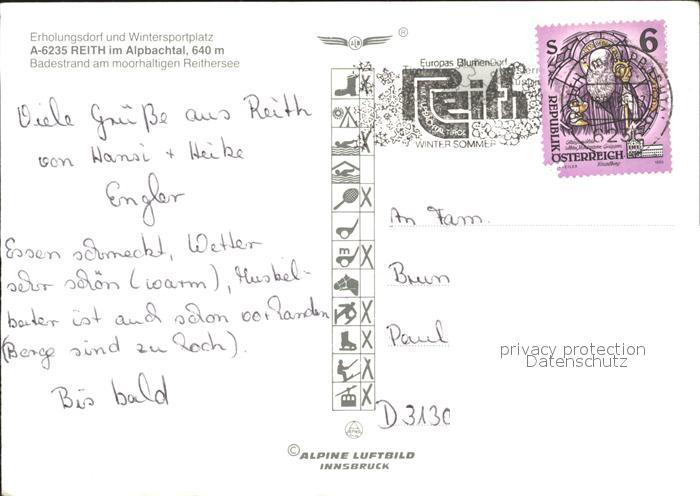 Erholungsdorf und Wintersportplatz
A-6235 REITH im Alpbachtal, 640 m
Badestrand am moorhaltigen Reithersee
Viele Grüße aus Reith
von Hansi + Heike
Engler
Essen schmeckt, Wetter
sehr schön (warm), Muskel-
kater ist auch schon vorhanden
(Berge sind zu hoch).
Bis bald
®
Europas BlumenDorf
Reith
IM ALPBACHTAL TIROL
WINTER SOMMER
S 6
REPUBLIK
ÖSTERREICH
An Fam.
Brun
Paul
D 3130
privacy protection
Datenschutz
© ALPINE LUFTBILD
INNSBRUCK